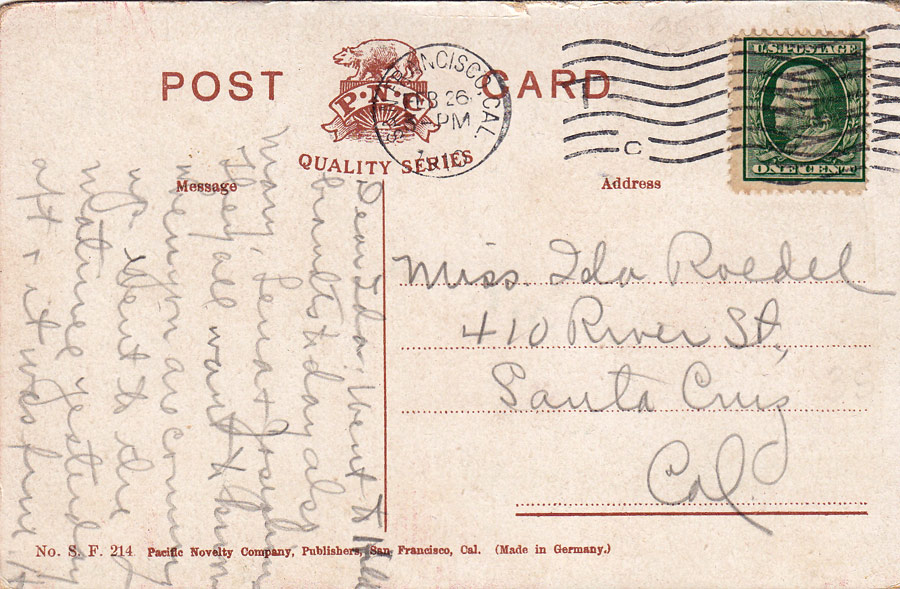 POST CARD
P. N. C.
QUALITY SERIES
SAN FRANCISCO, CAL.
FEB 26
-PM
1910
C
U.S. POSTAGE
ONE CENT
Message
Address
Dear Ida, Went to
today also
Mary, Lena & Josephine
They all want to know
when you are coming
up. Went to the
Matinee yesterday
aft & it was fine.
Miss. Ida Roedel
410 River St.,
Santa Cruz
Cal.
No. S. F. 214. Pacific Novelty Company, Publishers, San Francisco, Cal. (Made in Germany.)